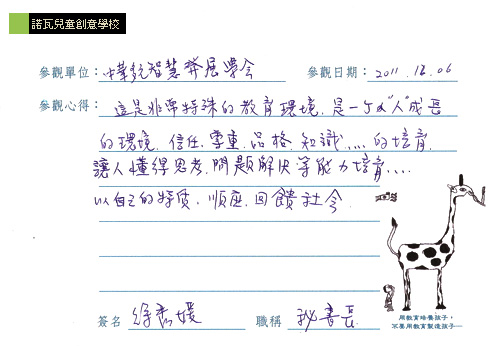 諾瓦兒童創意學校
參觀單位：中華多元智慧發展學會 參觀日期：2011.12.06
參觀心得：這是非常特殊的教育環境，是一個以"人"成長
的環境，信任、尊重、品格、知識....的培育，
讓人懂得思考，問題解決等能力培育....
以自己的特質，順座，回饋社會
用教育培養孩子，
不要用教育製造孩子
簽名 徐 媛 職稱 祕書長